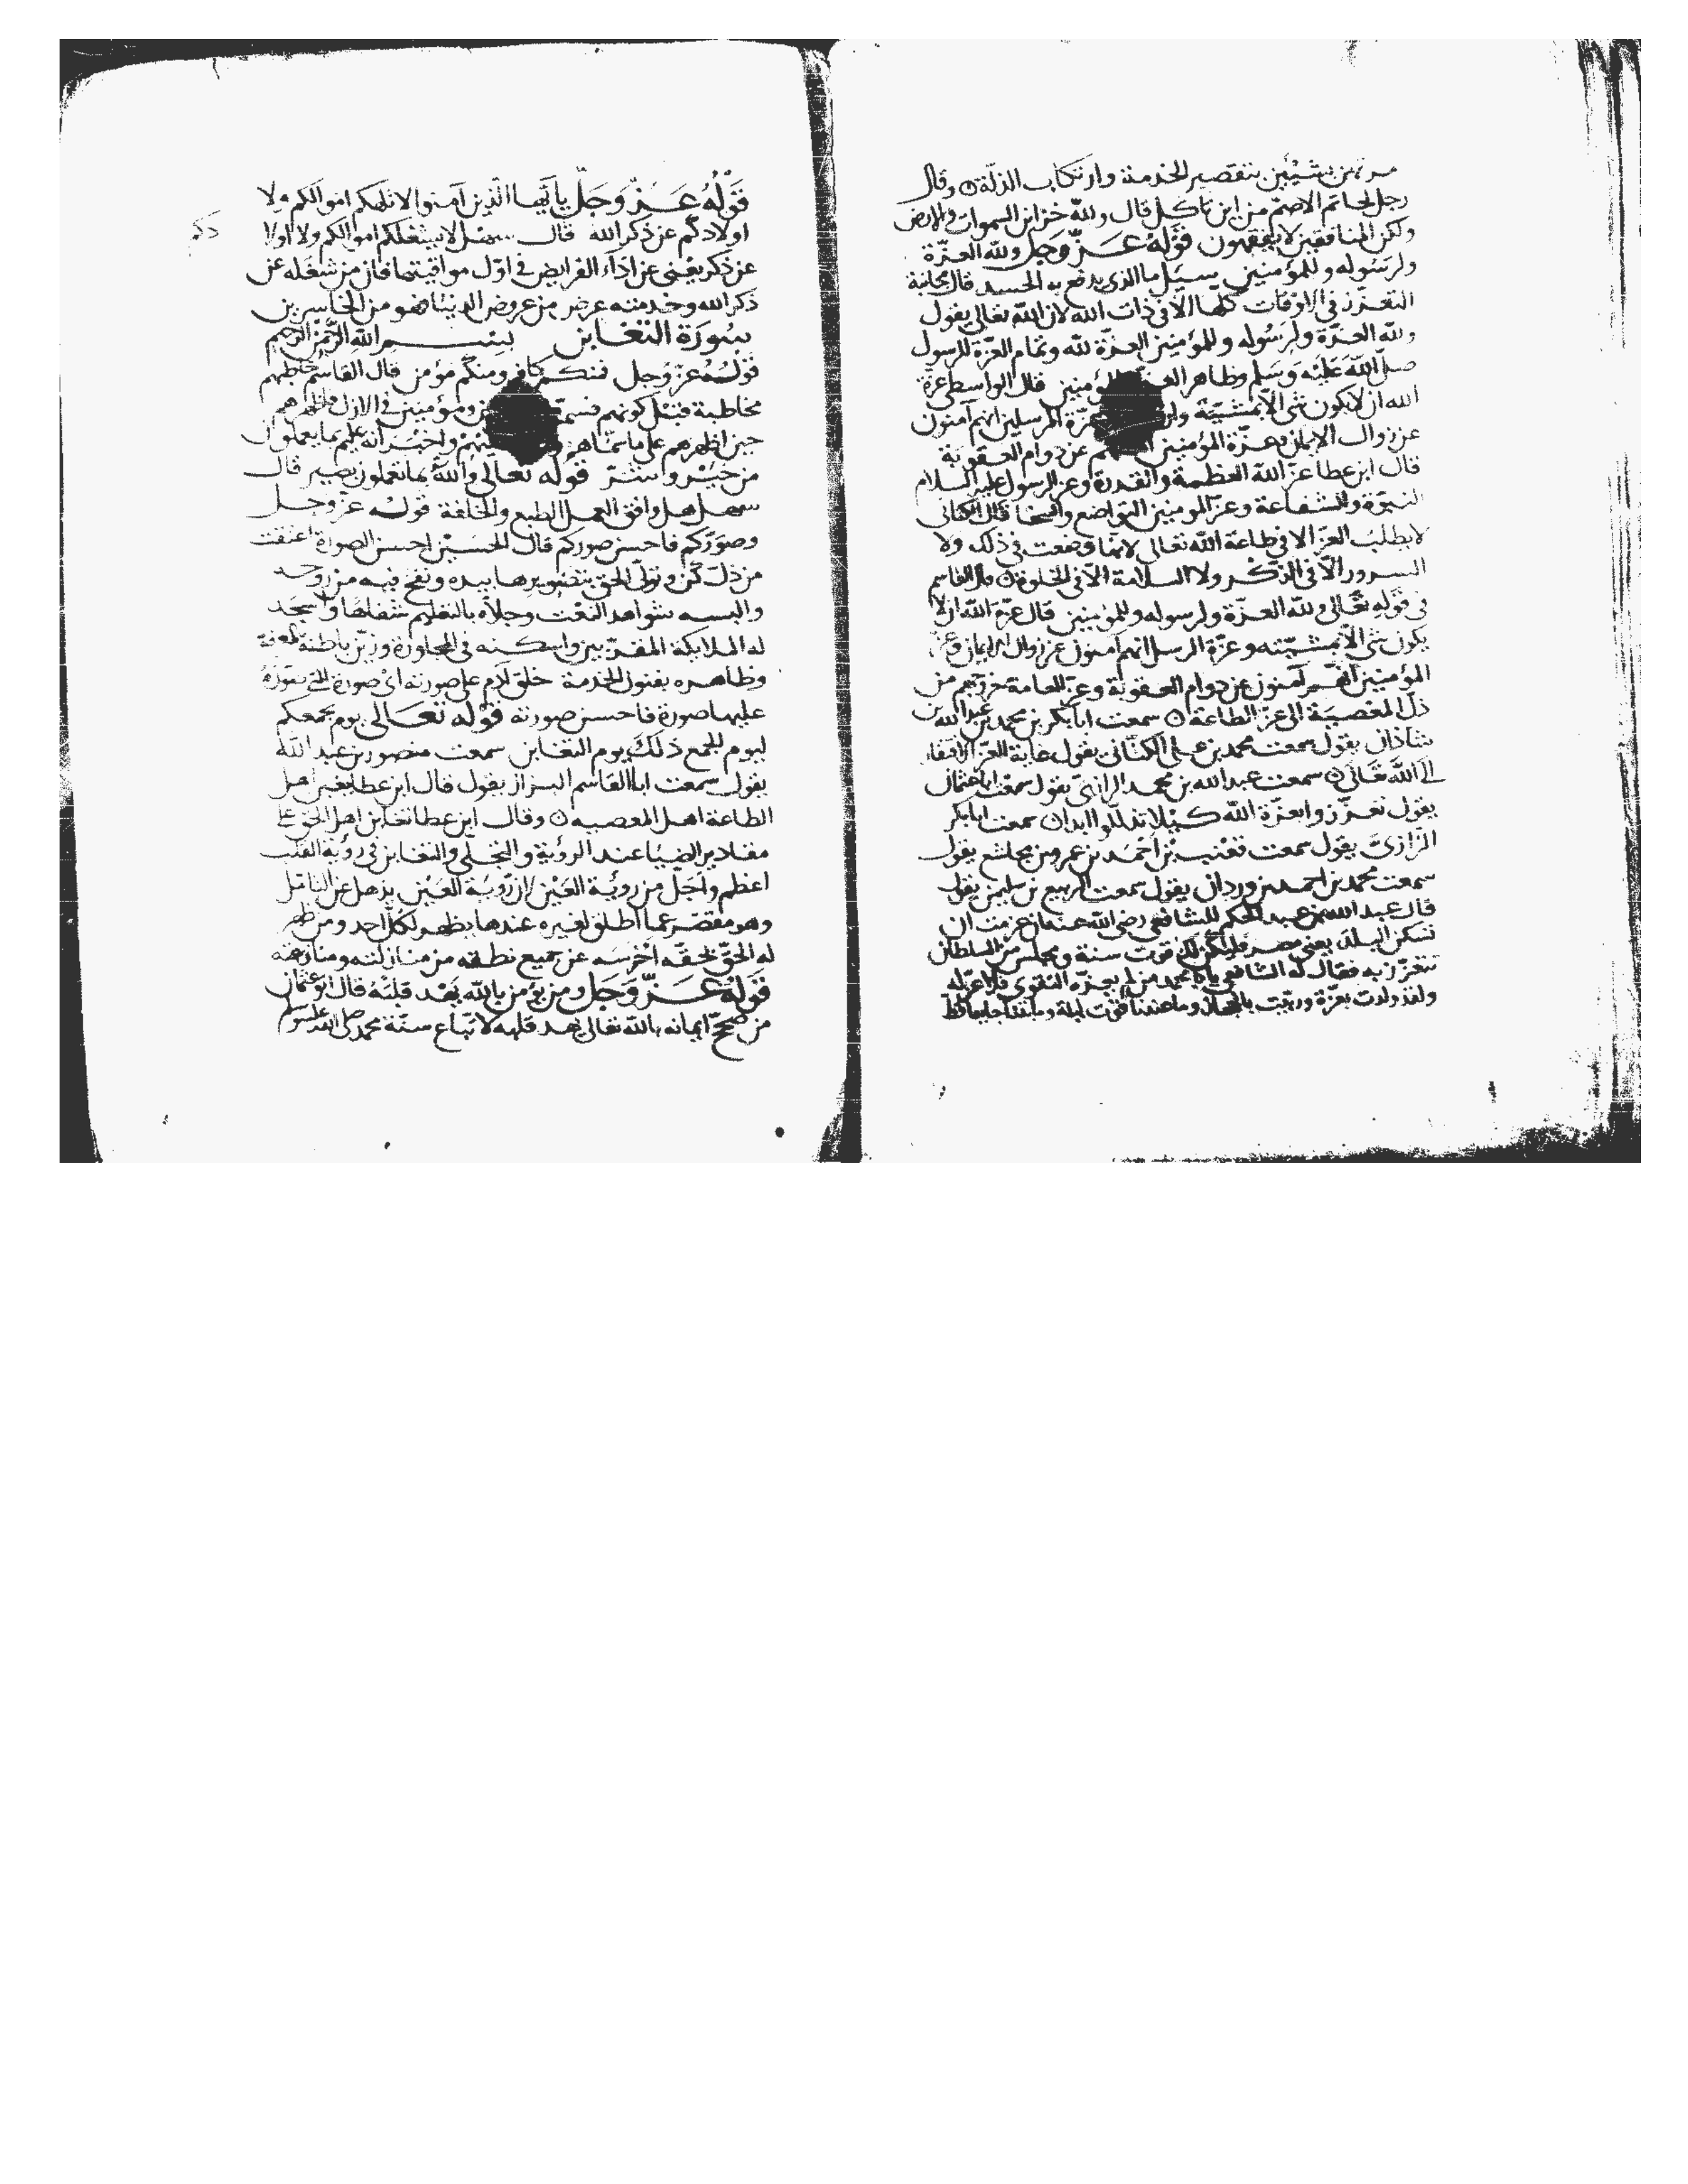 مرتهن بشيئين بتقصير الخدمة وارتكاب الذلة ن وقال
رجل لحاتم الاصم من اين تاكل قال ولله خزائن السموات والارض
ولكن المنافقين لا يفقهون قوله عز وجل ولله العزة
ولرسوله وللمؤمنين سيل ما الذى يدفع به الحسد قال مجانبة
التعزز فى الاوقات كلها الا فى ذات الله لان الله تعالى يقول
ولله العزة ولرسوله وللمؤمنين العزة لله وتمام العزة للرسول
صلى الله عليه وسلم وظاهر المؤمنين قال الواسطى عزة
الله ان لا يكون شى الا بمشيته وعزة المرسلين انهم آمنون
عن زوال الايمان وعزة المؤمنين عن دوام العقوبة
قال ابن عطا عز الله العظمة والقدرة وعز الرسول عليه السلام
النبوة والشفاعة وعز المومنين التواضع والسخا قال الكتانى
لا يطلب العز الا فى طاعة الله تعالى لانها وضعت فى ذلك ولا
السرور الا فى الذكر ولا السلامة الا فى الخلوة ن قال القاسم
فى قوله تعالى ولله العزة ولرسوله وللمؤمنين قال عزة الله ان لا
يكون شى الا بمشيته وعزة الرسل انهم آمنون عن زوال الايمان وعز
المؤمنين انهم آمنون عن دوام العقوبة وعز العامة خروجهم من
ذل المعصية الى عز الطاعة ن سمعت ابا بكر بن محمد بن عبد الله بن
شاذان يقول سمعت محمد بن على الكتانى يقول غاية العز الافتقار
الى الله تعالى ن سمعت عبد الله بن محمد الرازى يقول سمعت ابا عثمان
يقول تعززوا بعزة الله كيلا تذللوا ابدا ن سمعت ابا بكر
الرازى يقول سمعت بن احمد بن عمرو بن يقول
سمعت محمد بن احمد بن وردان يقول سمعت الربيع بن سليمن يقول
قال عبد الله بن عبد الحكم للشافعى رضى الله عنه ان عزمت ان
تسكن البلد يعنى مصر فليكن لك قوت سنة ومجلس من السلطان
تتعزز به فقال له الشافعى يا با محمد من لم يعزه التقوى فلا عز له
ولقد ولدت بغزة وربيت بالحجاز وما عندنا قوت ليلة وما بتنا جياعا قط
قوله عز وجل يا ايها الذين آمنوا لا تلهكم اموالكم ولا
اولادكم عن ذكر الله قال سهل لا يشغلكم اموالكم ولا اولا
دكم
عن ذكر يعنى عن اداء الفرايض فى اول مواقيتها فان من شغله عن
ذكر الله وخدمته عرض من عروض الدنيا فهو من الخاسرين
سورة التغابن بسم الله الرحمن الرحيم
قوله عز وجل فمنكم كافر ومنكم مؤمن قال القاسم خاطبهم
مخاطبة قبل كونهم فسم ومؤمنين فى الازل
حين اظهرهم على ما سماهم واخبر انه عليم بما يعملون
من خير وشر قوله تعالى والله بما تعملون بصير قال
سهل هل وافق العمل الطبع والخلقة قوله عز وجل
وصوركم فاحسن صوركم قال الحسين احسن الصورة اعتقت
من ذل كن وتولى الحق بتصويرها بيده ونفخ فيه من روحه
والبسه شواهد النعت وحلاه بالتعليم شفاها واسجد
له الملايكة المقربين واسكنه فى المجاورة وزين باطنه
وظاهره بفنون الخدمة خلق آدم على صورته اى صورة التى صوره
عليها صورة فاحسن صورته قوله تعالى يوم يجمعكم
ليوم الجمع ذلك يوم التغابن سمعت منصور بن عبد الله
يقول سمعت ابا القاسم البزاز يقول قال ابن عطا يغبن اهل
الطاعة اهل المعصيه ن وقال ابن عطا تغابن اهل الحق على
مقادير الضيا عند الرؤية والتجلى والتغابن فى رؤية القلب
اعظم واجل من روية العين لان روية العين
وهو مقصر عما اطلق لغيره عندها يظهر لكل احد ومن ظهر
له الحق بحقه اخرسه عن جميع نطقه من منازلته ومنازعته
قوله عز وجل ومن يؤمن بالله يهد قلبه قال ابو عثمان
من صحح ايمانه بالله تعالى يهد قلبه لاتباع سنة محمد صلى الله عليه وسلم